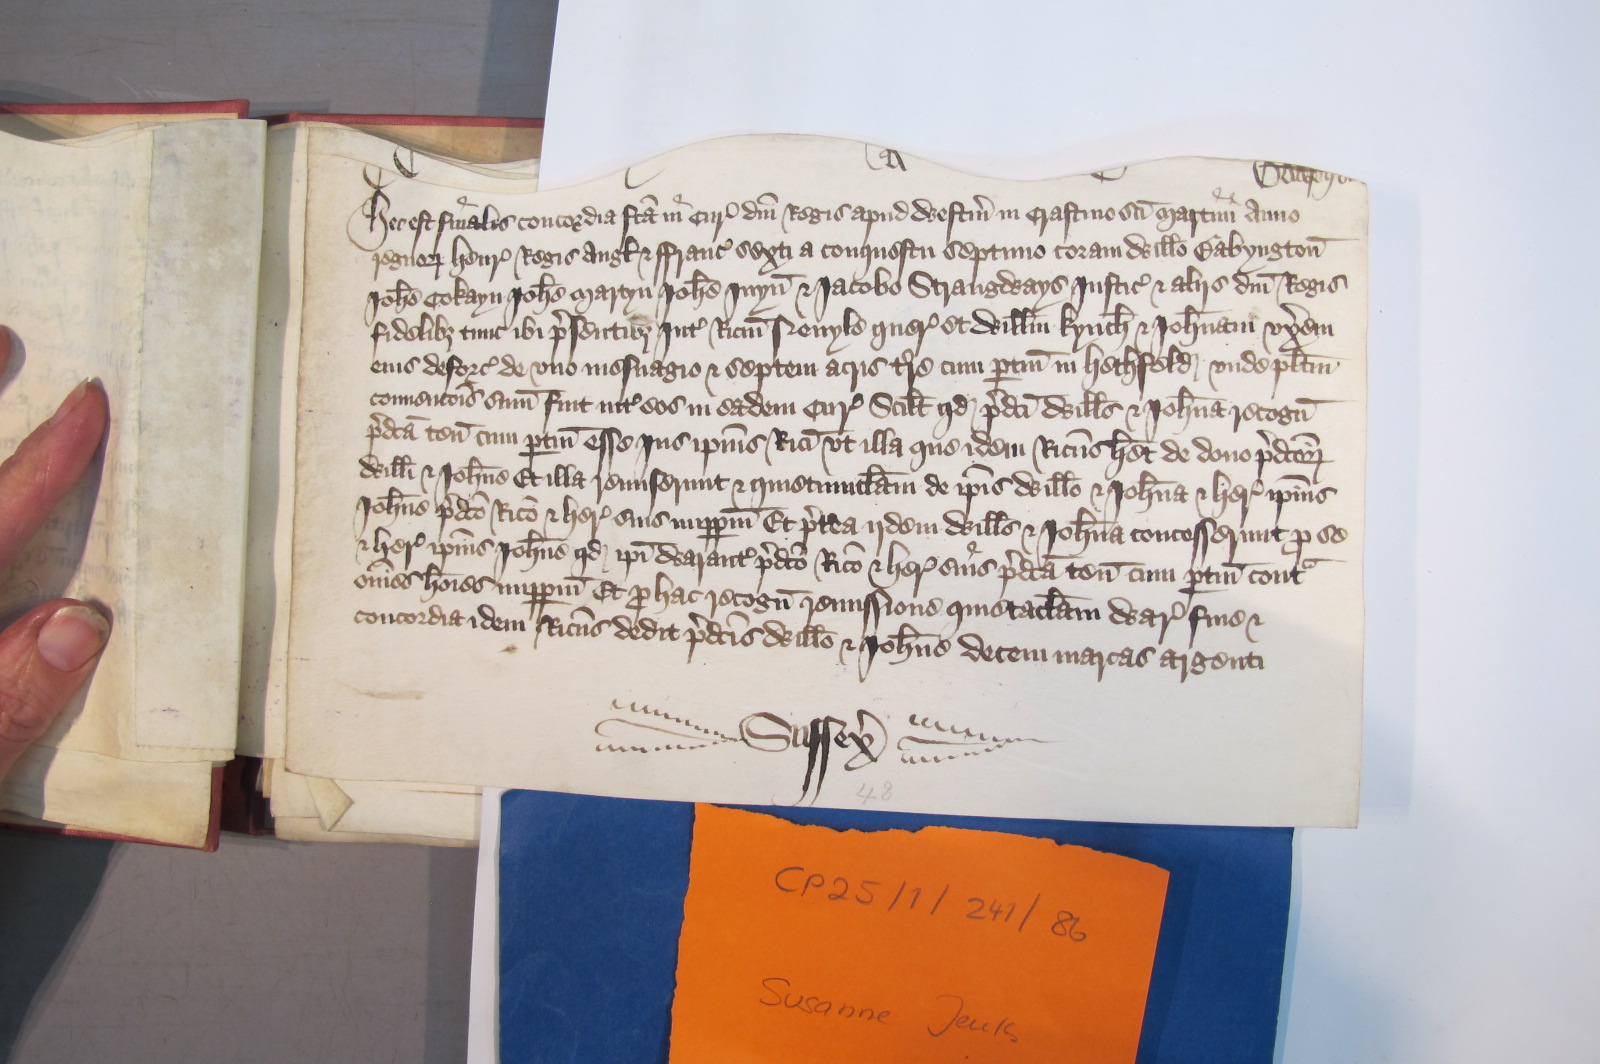 Hec est finalis concordia fca in Cur dni Regis apud Westm in Crastino sci Martini Anno
regnor Henr Regis Angl & Franc sexti a conquestu septimo coram Willo Babyngton
Johe Cokayn Johe Martyn Johe Juyn & Jacobo Strangways Justic & alijs dni Regis
fidelibz tunc ibi psentibz Int Ricm quer et Willm Kynch & Johnam vxem
eius deforc de vno mesuagio & septem acris tre cum ptin in Hethfeld vnde plitm
convencois sum fuit int eos in eadem Cur Scilt qd pdci Wills & Johna recogn
pdca ten cum ptin esse Jus ipius Rici vt illa que idem Ricus het de dono pdcor
Willi & Johne Et illa remiserunt & quietumclam de ipis Willo & Johna & her ipius
Johne pdco Rico & her suis imppm Et ptea ijdem Wills & Johna concesserunt p se
& her ipius Johne qd ipi warant pdco Rico & her suis pdca ten cum ptin cont
omes hoies imppm Et p hac recogn remissione quietaclam War fine &
concordia idem Ricus dedit pdcis Willo & Johne decem marcas argenti
Sussex
48
CP25/1/241/86
Susanne Jenks